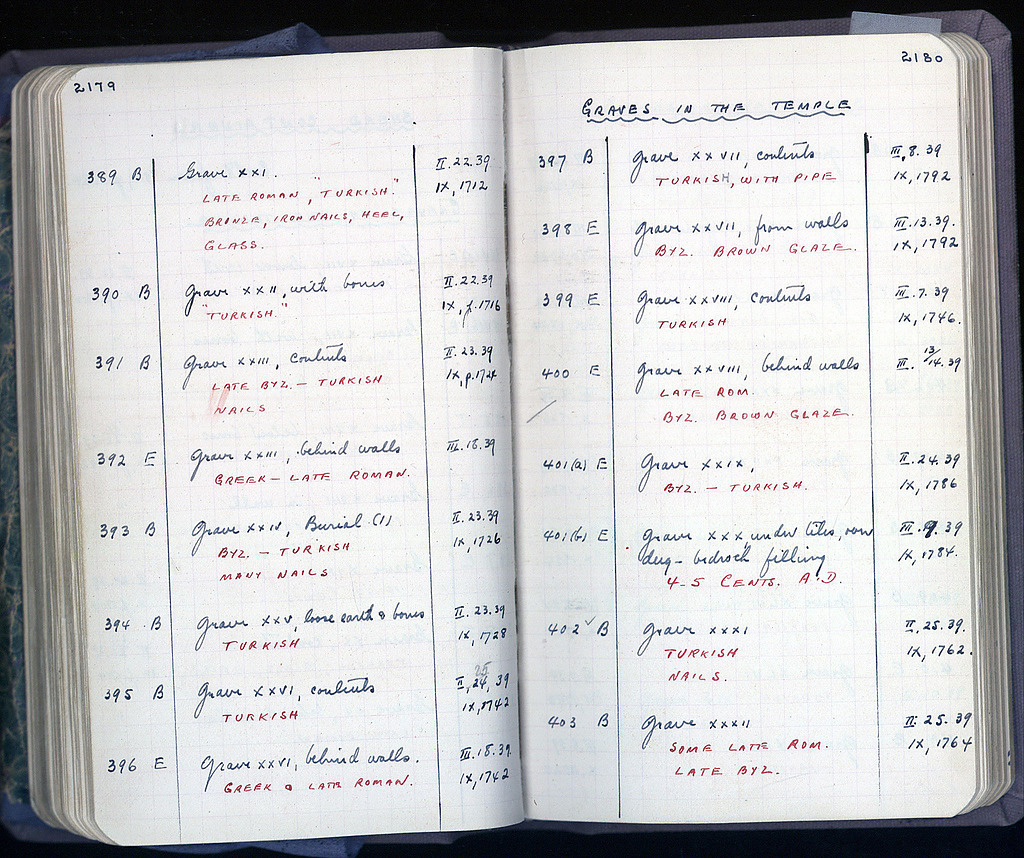 2179
389 B Grave XXI. II.22.39
LATE ROMAN, "TURKISH." IX, 1712
BRONZE, IRON NAILS, HEEL,
GLASS.
390 B Grave XXII, with bones II.22.39
"TURKISH." IX, p.1716
391 B Grave XXIII, contents II.23.39
LATE BYZ. – TURKISH IX, p.1724
NAILS
392 E Grave XXIII, behind walls III.18.39
GREEK – LATE ROMAN.
393 B Grave XXIV, Burial (1) II.23.39
BYZ. – TURKISH IX, 1726
MANY NAILS
394 B Grave XXV, loose earth & bones II.23.39
TURKISH IX, 1728
25
395 B Grave XXVI, contents II,24,39
TURKISH IX, 1742
396 E Grave XXVI, behind walls. III.18.39
GREEK & LATE ROMAN. IX, 1742
2180
GRAVES IN THE TEMPLE
397 B Grave XXVII, contents III,8.39
TURKISH, WITH PIPE IX, 1792
398 E Grave XXVII, from walls III.13.39.
BYZ. BROWN GLAZE. IX, 1792
399 E Grave XXVIII, contents III.7.39
TURKISH IX, 1746.
400 E Grave XXVIII, behind walls III. 13/14.39
LATE ROM.
BYZ. BROWN GLAZE.
401(a) E Grave XXIX, II.24.39
BYZ. – TURKISH. IX, 1786
401(b) E Grave XXX, under tiles, now III.9.39
dug – bedrock filling IX, 1784.
4–5 CENTS. A.D.
402 B Grave XXXI II,25.39.
TURKISH IX, 1762.
NAILS.
403 B Grave XXXII II.25.39
SOME LATE ROM. IX, 1764
LATE BYZ.